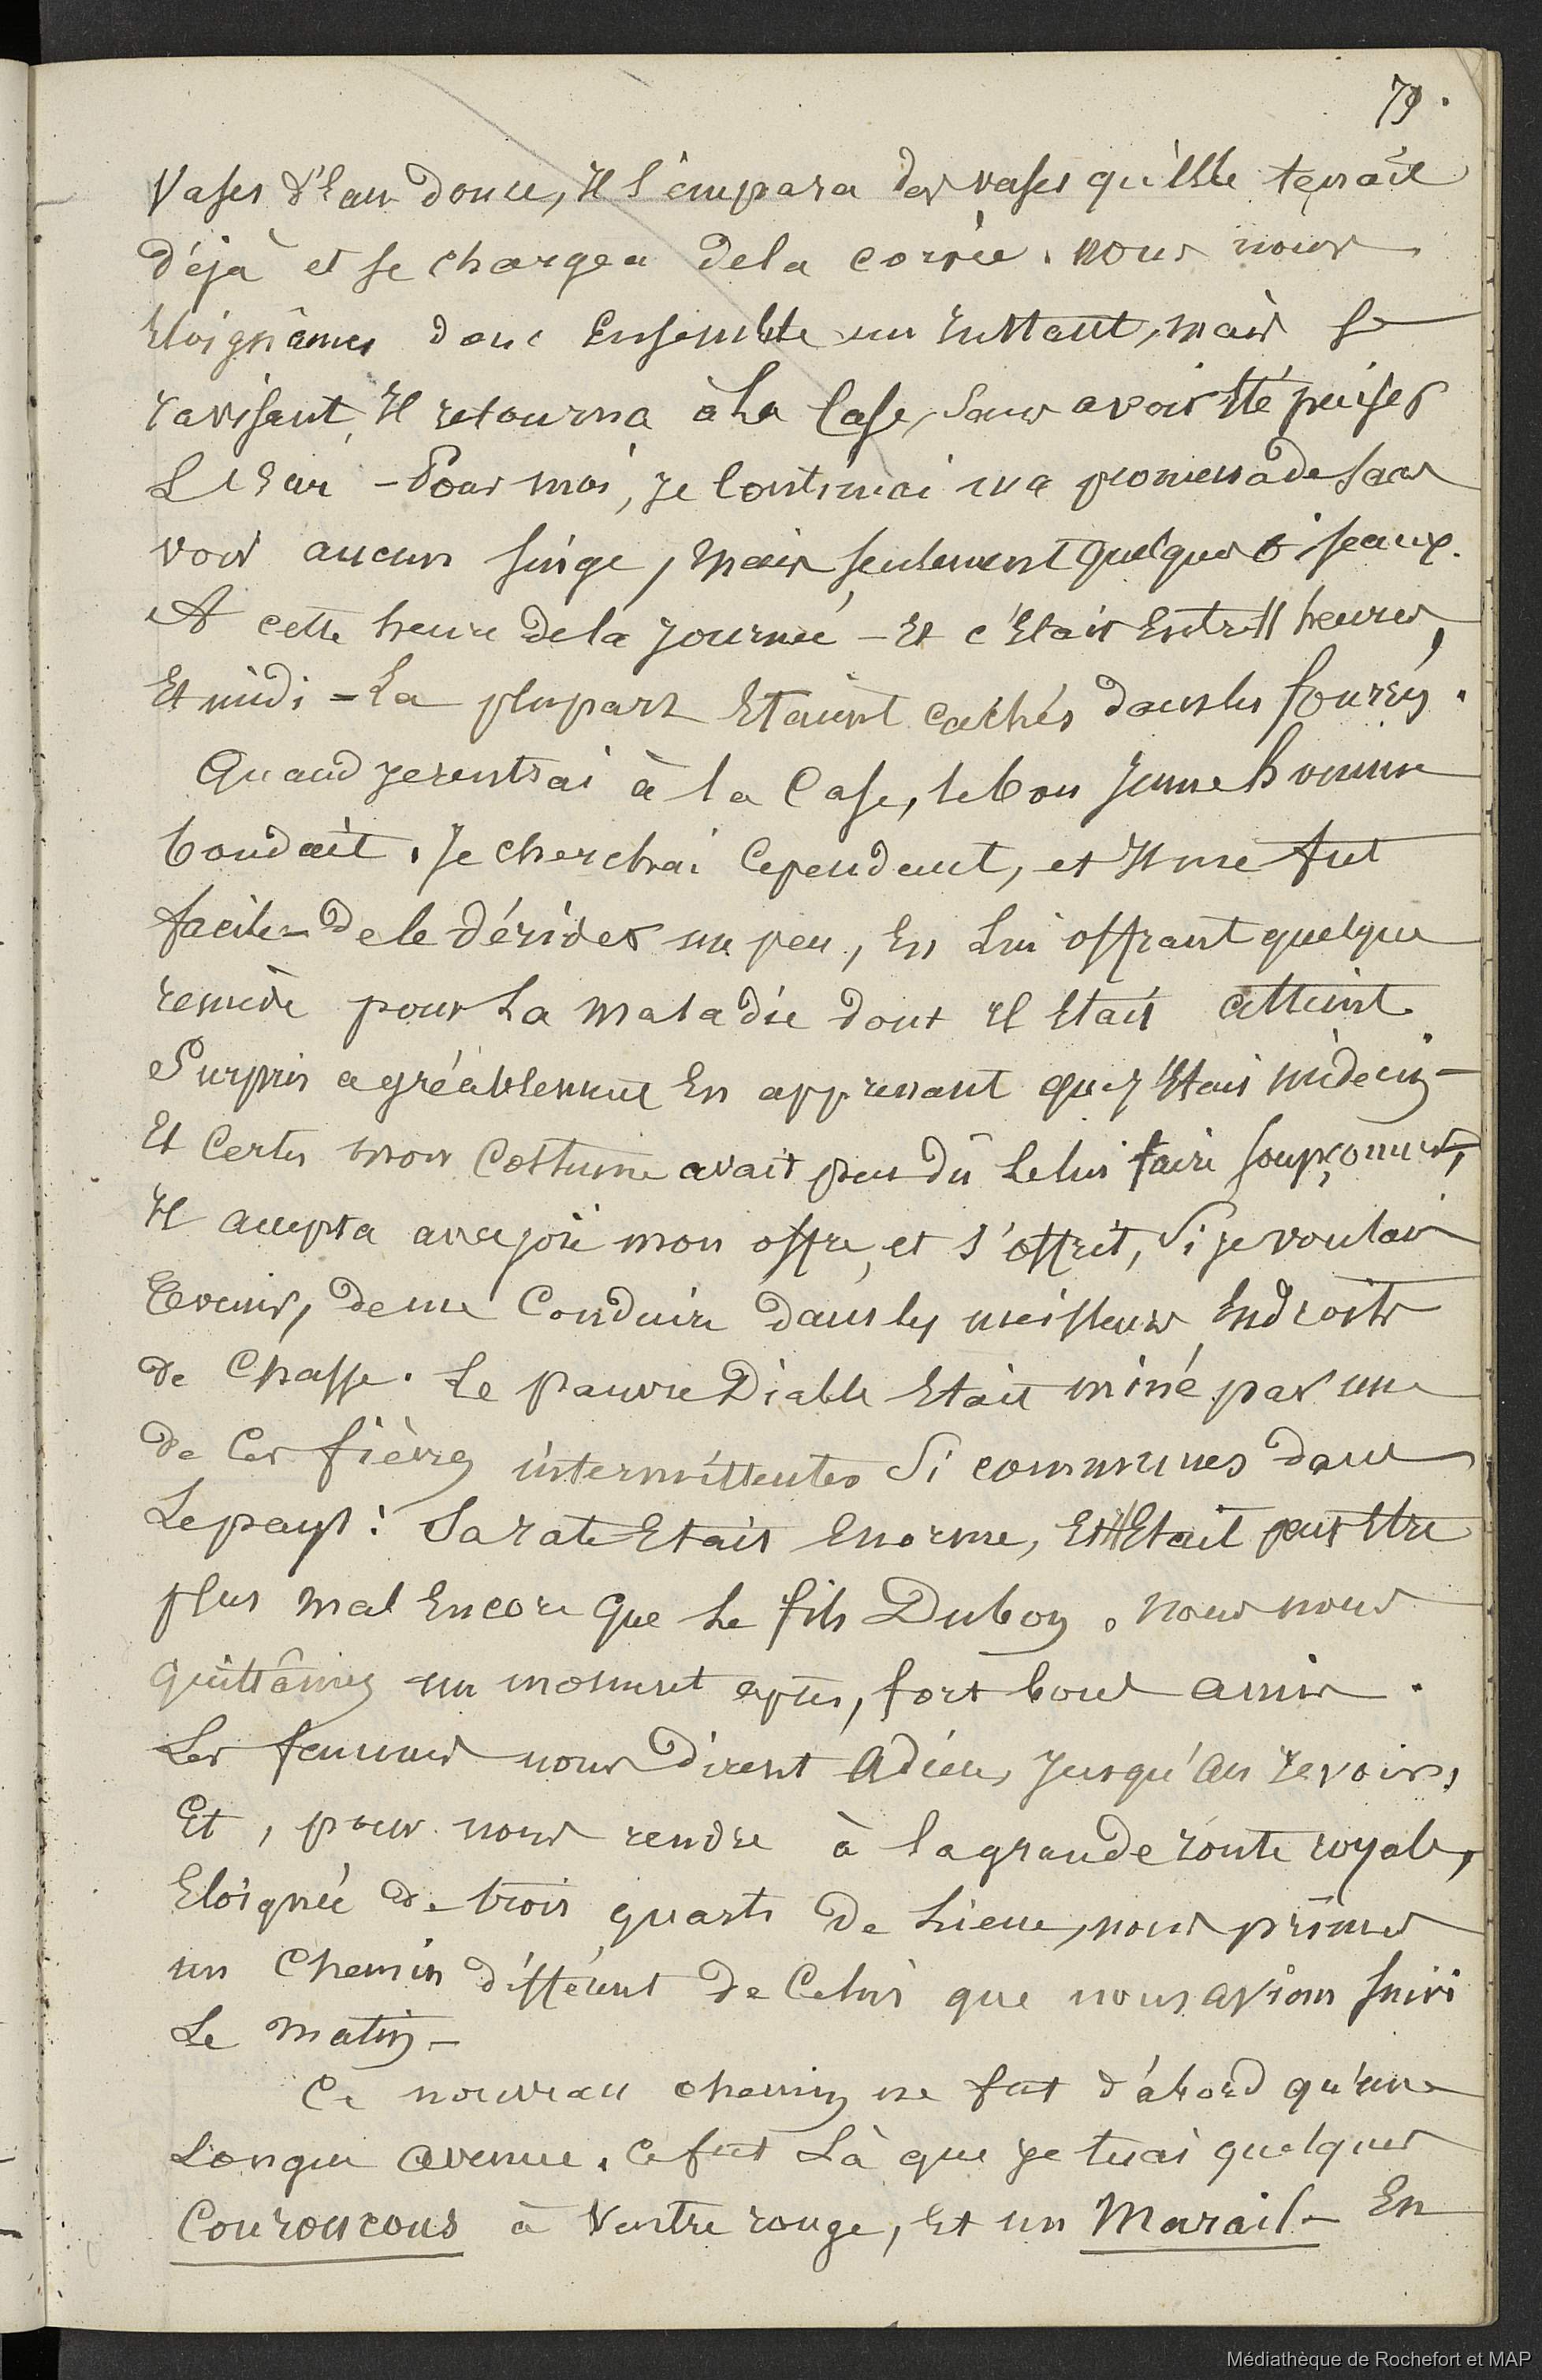 79.
Vases d'Eau douce, Il s'empara des vases qu'Elle tenait
déjà et se chargea de la corvée. nous nous
Eloignâmes donc Ensemble un Instant, mais se
ravisant, Il retourna à La Case, Sans avoir Eté puiser
L'Eau - Pour moi, Je Continuai ma promenade sans
voir aucun singe, mais seulement quelques oiseaux.
A cette heure de la Journée - Et c'Etait Entre 11 heures,
Et midi - La plupart Etaient cachés dans les fourrés.
Quand Je rentrai à la Case, le bon Jeune homme
boudait. Je cherchai Cependant, et Il me fut
facile de le dérider un peu, En Lui offrant quelque
remède pour La maladie dont Il Etait atteint.
Surpris agréablement En apprenant que j'Etais médecin -
Et Certes mon Costume avait peu dû Le lui faire soupçonner,
Il accepta avec joie mon offre, et s'offrit, Si je voulais
revenir, de me Conduire dans les meilleurs Endroits
de Chasse. Le pauvre Diable Etait miné par une
de Ces fièvres intermittentes Si communes dans
Le pays: Sa rate Etait Enorme, Et Il Etait peut Etre
plus mal Encore que Le fils Duboy. nous nous
quittâmes un moment après, fort bons amis.
Les femmes nous dirent Adieu, Jusqu'au revoir,
Et, pour nous rendre à la grande route royale,
Eloignée de trois quarts de Lieue, nous prîmes
un Chemin différent de Celui que nous avions Suivi
Le matin -
Ce nouveau chemin ne fut d'abord qu'une
Longue avenue. Ce fut Là que je tuai quelques
Couroucous à Ventre rouge, Et un Marail - En
Médiathèque de Rochefort et MAP